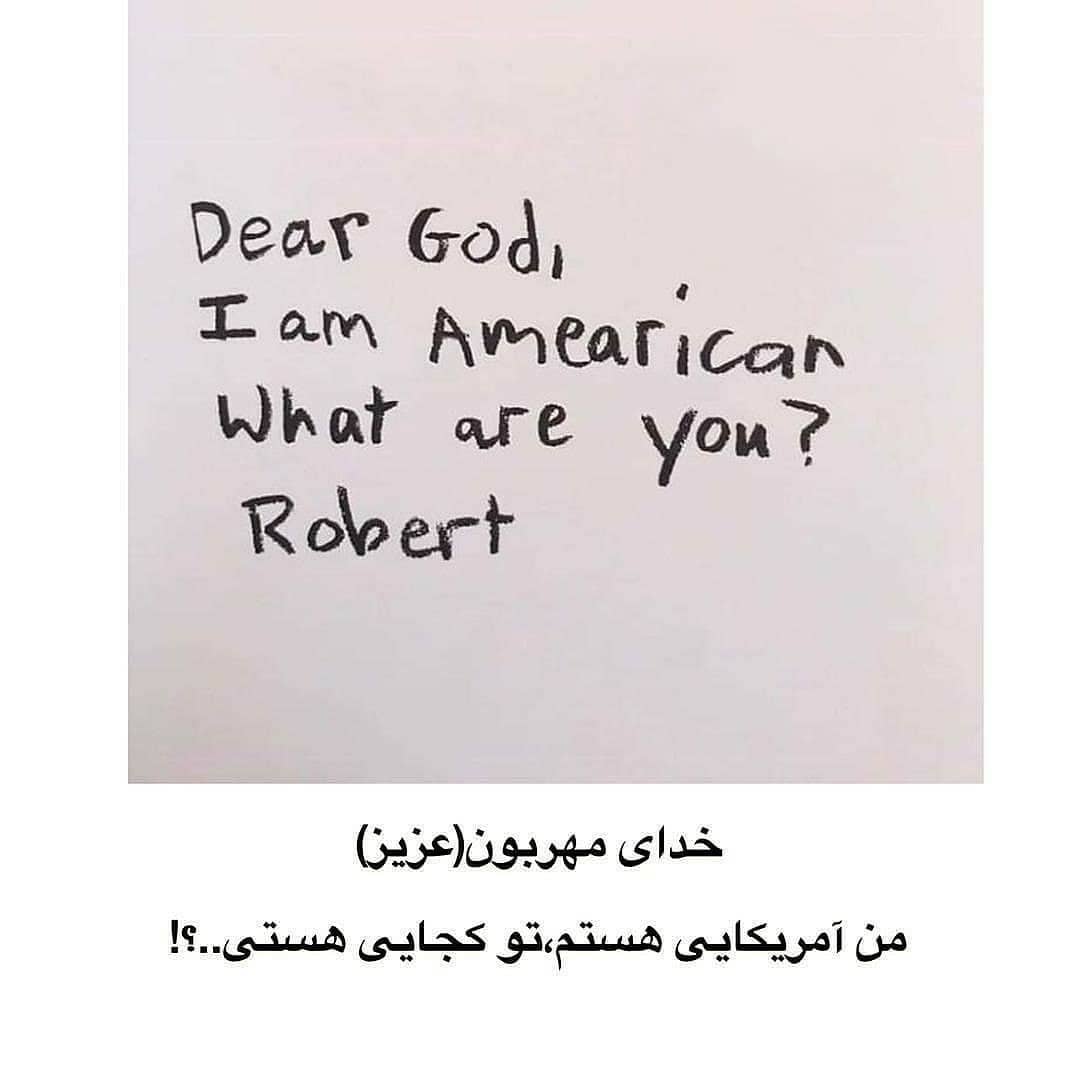 Dear God,
I am Amearican
What are you?
Robert
خدای مهربون(عزیز)
من آمریکایی هستم،تو کجایی هستی..؟!